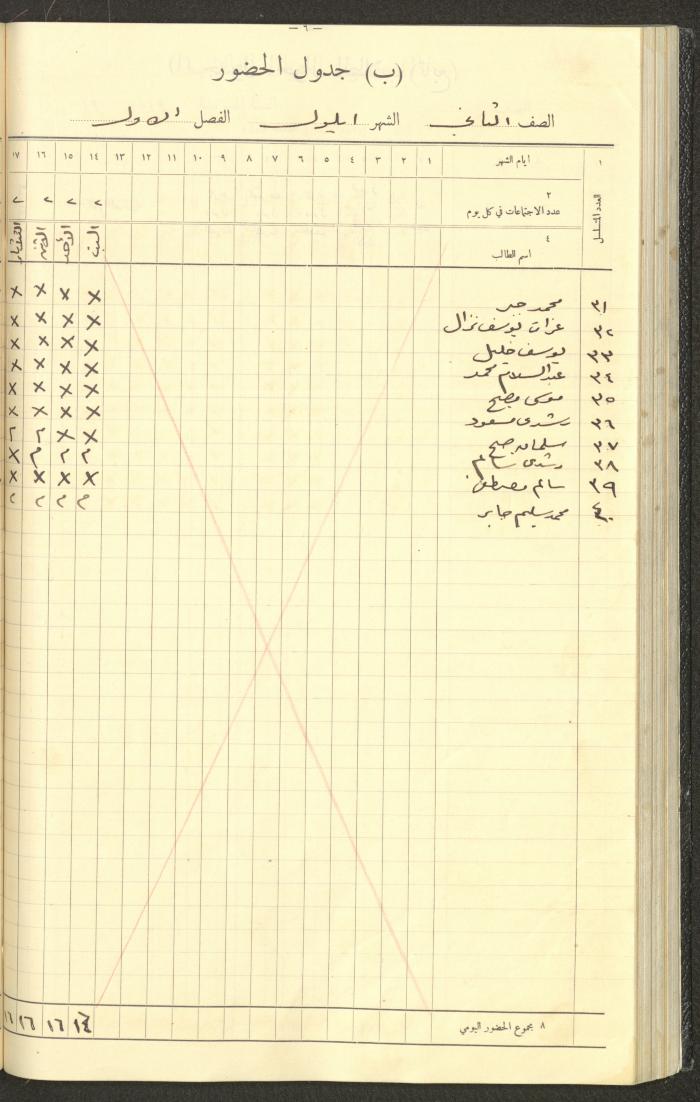 — ٦ —
(ب) جدول الحضور
الصف الثاني الشهر ايلول الفصل الاول
١ العدد المتسلسل
ايام الشهر ١ ٢ ٣ ٤ ٥ ٦ ٧ ٨ ٩ ١٠ ١١ ١٢ ١٣ ١٤ ١٥ ١٦ ١٧
٢ عدد الاجتماعات في كل يوم ٢ ٢ ٢ ٢
٤ اسم الطالب السبت الأحد الاثنين الثلاثاء
٣١ محمد جبر x x x x
٣٢ عزات يوسف نزال x x x x
٣٣ يوسف خليل x x x x
٣٤ عبد السلام محمد x x x x
٣٥ موسى مصلح x x x x
٣٦ رشدي مسعود x x x x
٣٧ سلمان x x
٣٨ رشدي سالم x
٣٩ سالم مصطفى x x x x
٤٠ محمد سليم جابر
٨ مجموع الحضور اليومي ١٤ ١٦ ١٦ ١٦